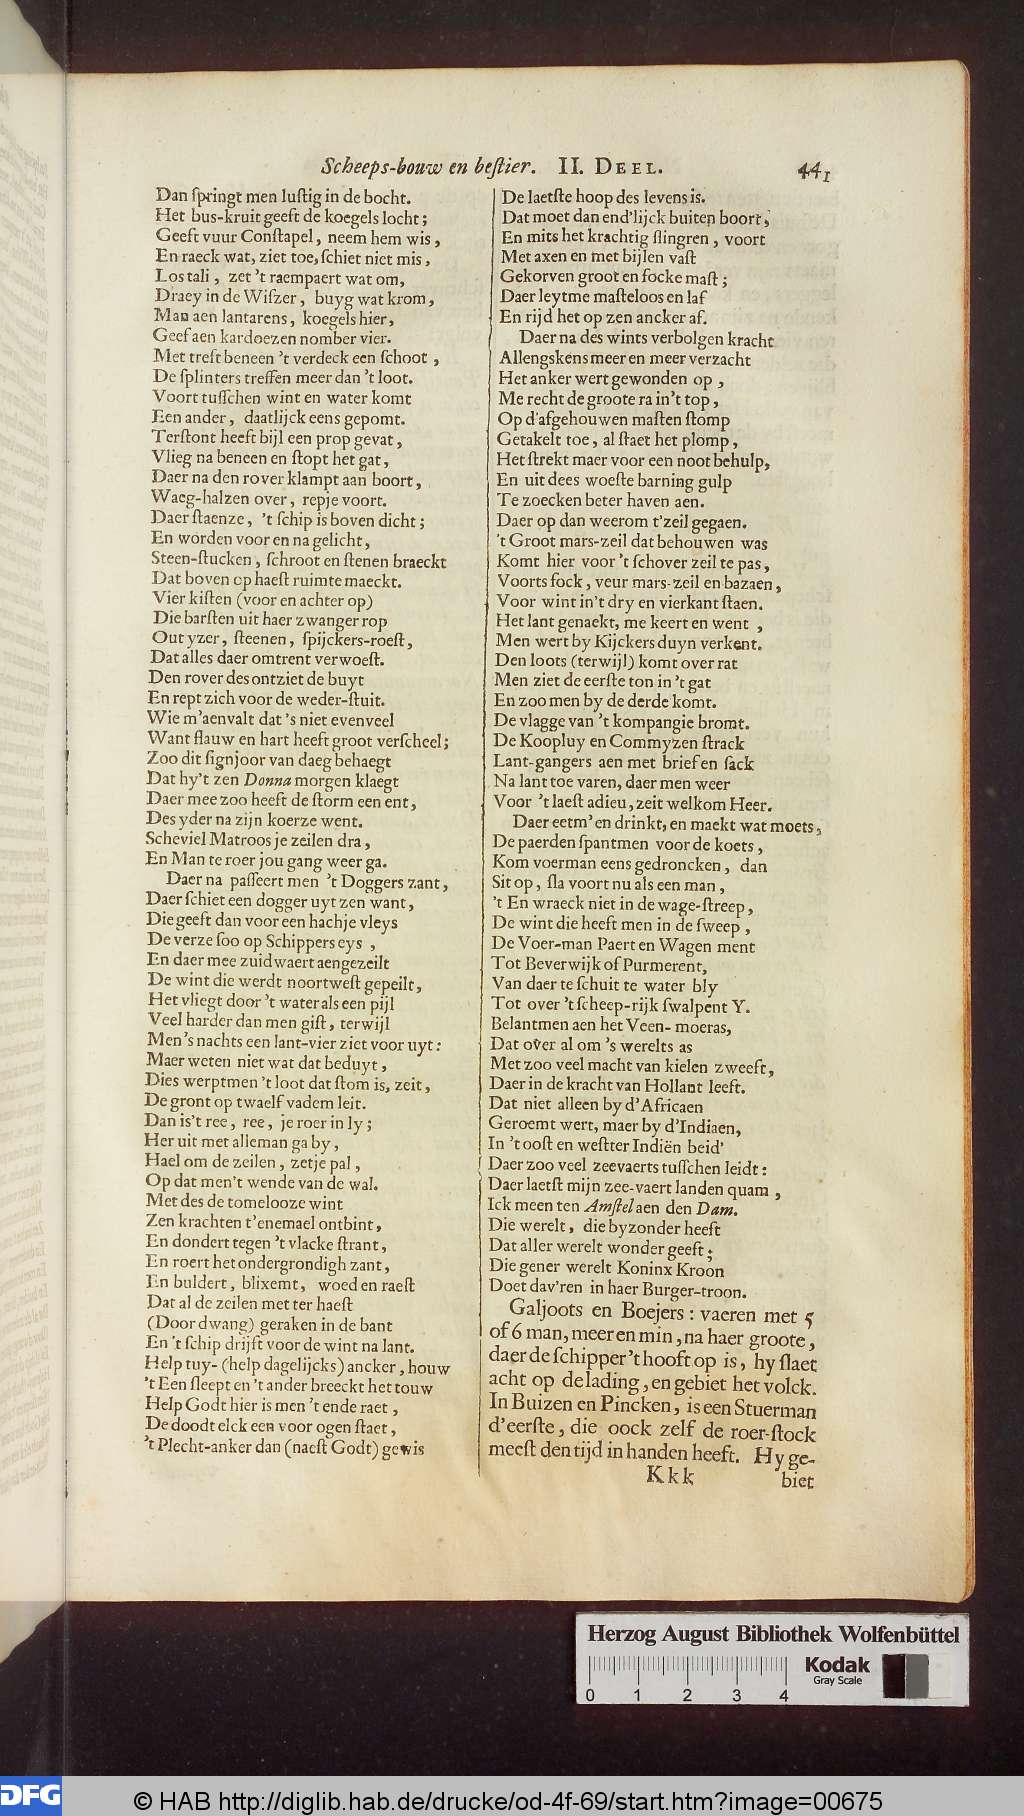 Scheeps-bouw en beſtier. II. DEEL. 441
Dan ſpringt men luſtig in de bocht.
Het bus-kruit geeft de koegels locht;
Geeft vuur Conſtapel, neem hem wis,
En raeck wat, ziet toe, ſchiet niet mis,
Los tali, zet 't raempaert wat om,
Draey in de Wiſzer, buyg wat krom,
Man aen lantarens, koegels hier,
Geef aen kardoezen nomber vier.
Met treft beneen 't verdeck een ſchoot,
De ſplinters treffen meer dan 't loot.
Voort tuſſchen wint en water komt
Een ander, daatlijck eens gepomt.
Terſtont heeft bijl een prop gevat,
Vlieg na beneen en ſtopt het gat,
Daer na den rover klampt aan boort,
Waeg-halzen over, repje voort.
Daer ſtaenze, 't ſchip is boven dicht;
En worden voor en na gelicht,
Steen-ſtucken, ſchroot en ſtenen braeckt
Dat boven op haeſt ruimte maeckt.
Vier kiſten (voor en achter op)
Die barſten uit haer zwanger rop
Out yzer, ſteenen, ſpijckers-roeſt,
Dat alles daer omtrent verwoeſt.
Den rover des ontziet de buyt
En rept zich voor de weder-ſtuit.
Wie m'aenvalt dat 's niet evenveel
Want flauw en hart heeft groot verſcheel;
Zoo dit ſignjoor van daeg behaegt
Dat hy't zen Donna morgen klaegt
Daer mee zoo heeft de ſtorm een ent,
Des yder na zijn koerze went.
Scheviel Matroos je zeilen dra,
En Man te roer jou gang weer ga.
Daer na paſſeert men 't Doggers zant,
Daer ſchiet een dogger uyt zen want,
Die geeft dan voor een hachje vleys
De verze ſoo op Schippers eys,
En daer mee zuidwaert aengezeilt
De wint die werdt noortweſt gepeilt,
Het vliegt door 't water als een pijl
Veel harder dan men giſt, terwijl
Men 's nachts een lant-vier ziet voor uyt:
Maer weten niet wat dat beduyt,
Dies werptmen 't loot dat ſtom is, zeit,
De gront op twaelf vadem leit.
Dan is't ree, ree, je roer in ly;
Her uit met alleman ga by,
Hael om de zeilen, zetje pal,
Op dat men't wende van de wal.
Met des de tomelooze wint
Zen krachten t'enemael ontbint,
En dondert tegen 't vlacke ſtrant,
En roert het ondergrondigh zant,
En buldert, blixemt, woed en raeſt
Dat al de zeilen met ter haeſt
(Door dwang) geraken in de bant
En 't ſchip drijft voor de wint na lant.
Help tuy- (help dagelijcks) ancker, houw
't Een ſleept en 't ander breeckt het touw
Help Godt hier is men 't ende raet,
De doodt elck een voor ogen ſtaet,
't Plecht-anker dan (naeſt Godt) gewis
De laetſte hoop des levens is.
Dat moet dan end'lijck buiten boort,
En mits het krachtig ſlingren, voort
Met axen en met bijlen vaſt
Gekorven groot en focke maſt;
Daer leytme maſteloos en laf
En rijd het op zen ancker af.
Daer na des wints verbolgen kracht
Allengskens meer en meer verzacht
Het anker wert gewonden op,
Me recht de groote ra in't top,
Op d'afgehouwen maſten ſtomp
Getakelt toe, al ſtaet het plomp,
Het ſtrekt maer voor een noot behulp,
En uit dees woeſte barning gulp
Te zoecken beter haven aen.
Daer op dan weerom t'zeil gegaen.
't Groot mars-zeil dat behouwen was
Komt hier voor 't ſchover zeil te pas,
Voorts fock, veur mars-zeil en bazaen,
Voor wint in't dry en vierkant ſtaen.
Het lant genaekt, me keert en went,
Men wert by Kijckers duyn verkent.
Den loots (terwijl) komt over rat
Men ziet de eerſte ton in 't gat
En zoo men by de derde komt.
De vlagge van 't kompangie bromt.
De Koopluy en Commyzen ſtrack
Lant-gangers aen met brief en ſack
Na lant toe varen, daer men weer
Voor 't laeſt adieu, zeit welkom Heer.
Daer eetm'en drinkt, en maekt wat moets,
De paerden ſpantmen voor de koets,
Kom voerman eens gedroncken, dan
Sit op, ſla voort nu als een man,
't En wraeck niet in de wage-ſtreep,
De wint die heeft men in de ſweep,
De Voer-man Paert en Wagen ment
Tot Beverwijk of Purmerent,
Van daer te ſchuit te water bly
Tot over 't ſcheep-rijk ſwalpent Y.
Belantmen aen het Veen-moeras,
Dat over al om 's werelts as
Met zoo veel macht van kielen zweeft,
Daer in de kracht van Hollant leeft.
Dat niet alleen by d'Africaen
Geroemt wert, maer by d'Indiaen,
In 't ooſt en weſtter Indiën beid'
Daer zoo veel zeevaerts tuſſchen leidt:
Daer laetſt mijn zee-vaert landen quam,
Ick meen ten Amſtel aen den Dam.
Die werelt, die byzonder heeft
Dat aller werelt wonder geeft;
Die gener werelt Koninx Kroon
Doet dav'ren in haer Burger-troon.
Galjoots en Boejers: vaeren met 5
of 6 man, meer en min, na haer groote,
daer de ſchipper 't hooft op is, hy ſlaet
acht op de lading, en gebiet het volck.
In Buizen en Pincken, is een Stuerman
d'eerſte, die oock zelf de roer-ſtock
meeſt den tijd in handen heeft. Hy ge-
Kkk biet
Herzog August Bibliothek Wolfenbüttel
Kodak
Gray Scale
0 1 2 3 4
DFG © HAB http://diglib.hab.de/drucke/od-4f-69/start.htm?image=00675